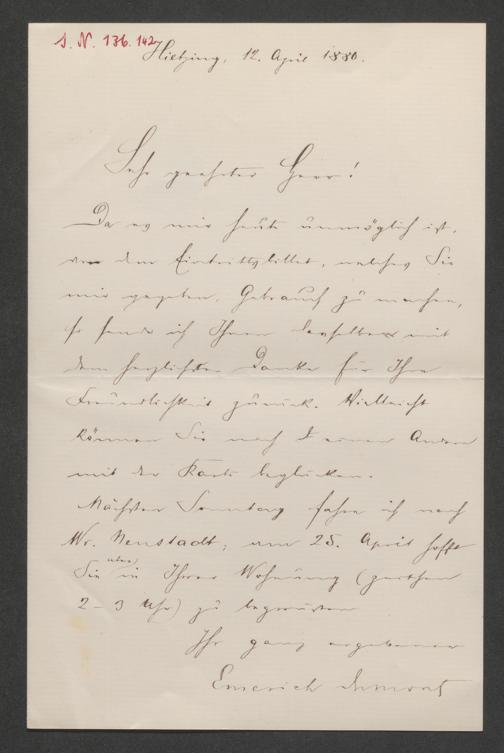 I. N. 136.142
Hietzing, 12. April 1880.
Sehr geehrter Herr!
Da es mir heute unmöglich ist,
von dem Eintrittsbillet, welches Sie
mir gegeben, Gebrauch zu machen,
so sende ich Ihnen dasselbe mit
dem herzlichsten Danke für Ihre
Freundlichkeit zurück. Vielleicht
können Sie noch einen Andern
mit der Karte beglücken.
Nächsten Sonntag fahre ich nach
Wr. Neustadt; am 25. April hoffe
Sie aber in Ihrer Wohnung (zwischen
2 – 3 Uhr) zu begrüssen
Ihr ganz ergebener
Emerich Dumont